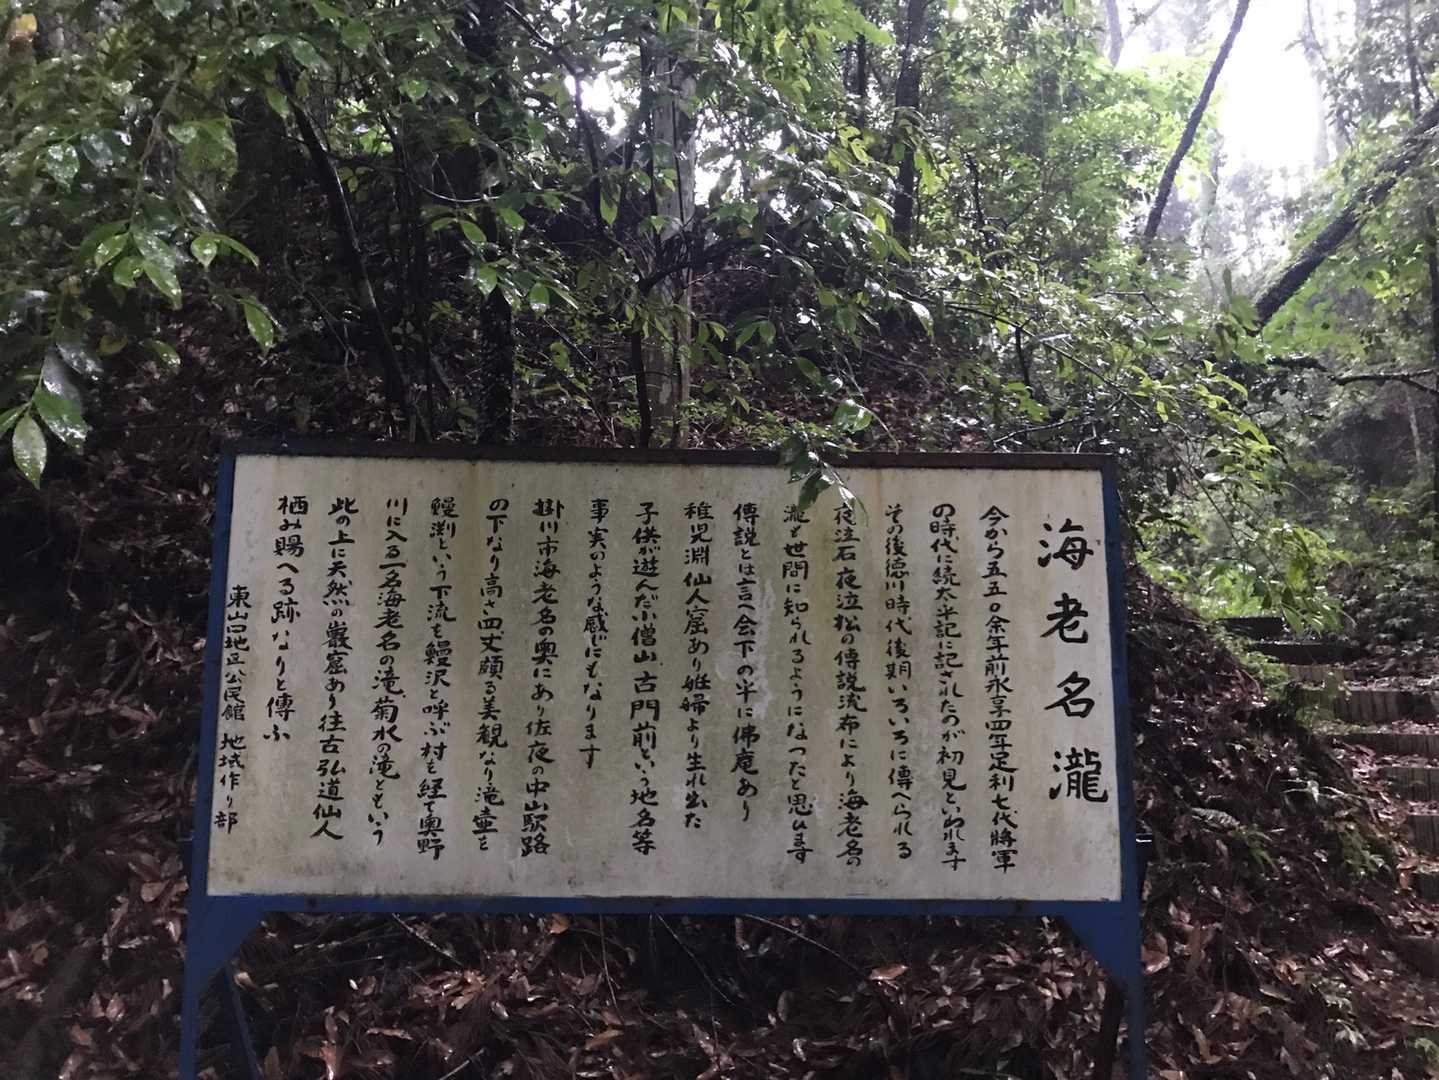 海老名瀧
今から五五〇余年前永享四年足利七代將軍
の時代に続太平記に記されたのが初見といわれます
その後徳川時代後期いろいろに傳へられる
夜泣石夜泣松の傳説流布により海老名の
瀧も世間に知られるようになつたと思ひます
傳説とは言へ会下の平に佛庵あり
稚児淵仙人窟あり姙婦より生れ出た
子供が遊んだ小僧山古門前という地名等
事実のような感じにもなります
掛川市海老名の奥にあり佐夜の中山駅路
の下なり高さ四丈頗る美観なり滝壷を
鰻渕という下流を鰻沢と呼ぶ村を経て奥野
川に入る一名海老名の滝菊水の滝ともいう
此の上に天然の巌窟あり往古弘道仙人
栖み賜へる跡なりと傳ふ
東山口地区公民館 地域作り部